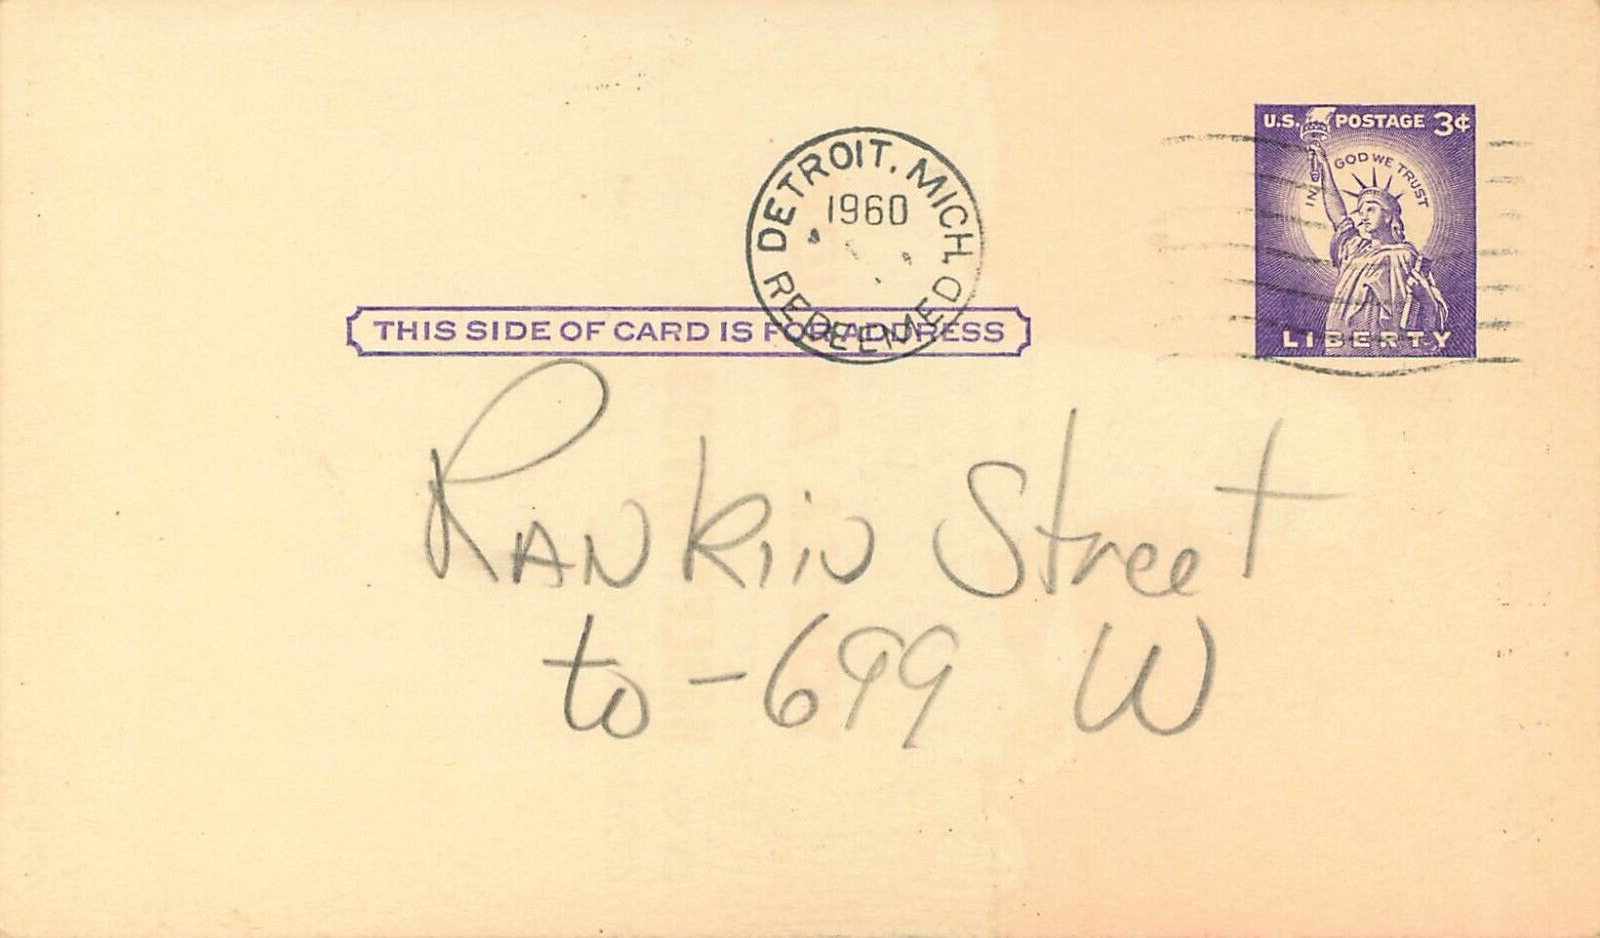 U.S. POSTAGE 3¢
IN GOD WE TRUST
LIBERTY
DETROIT, MICH.
1960
REDEEMED
THIS SIDE OF CARD IS FOR ADDRESS
RANKiN Street
to - 699 W